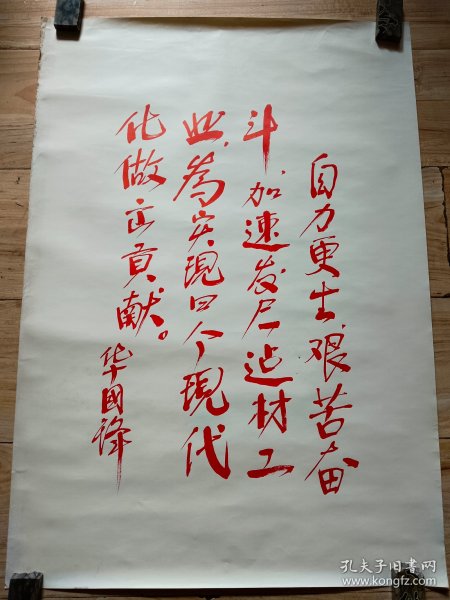 自力更生，艰苦奋
斗，加速发展迠材工
业，為实現四个現代
化做出貢献。
华國锋
孔夫子旧书网
www.kongfz.com